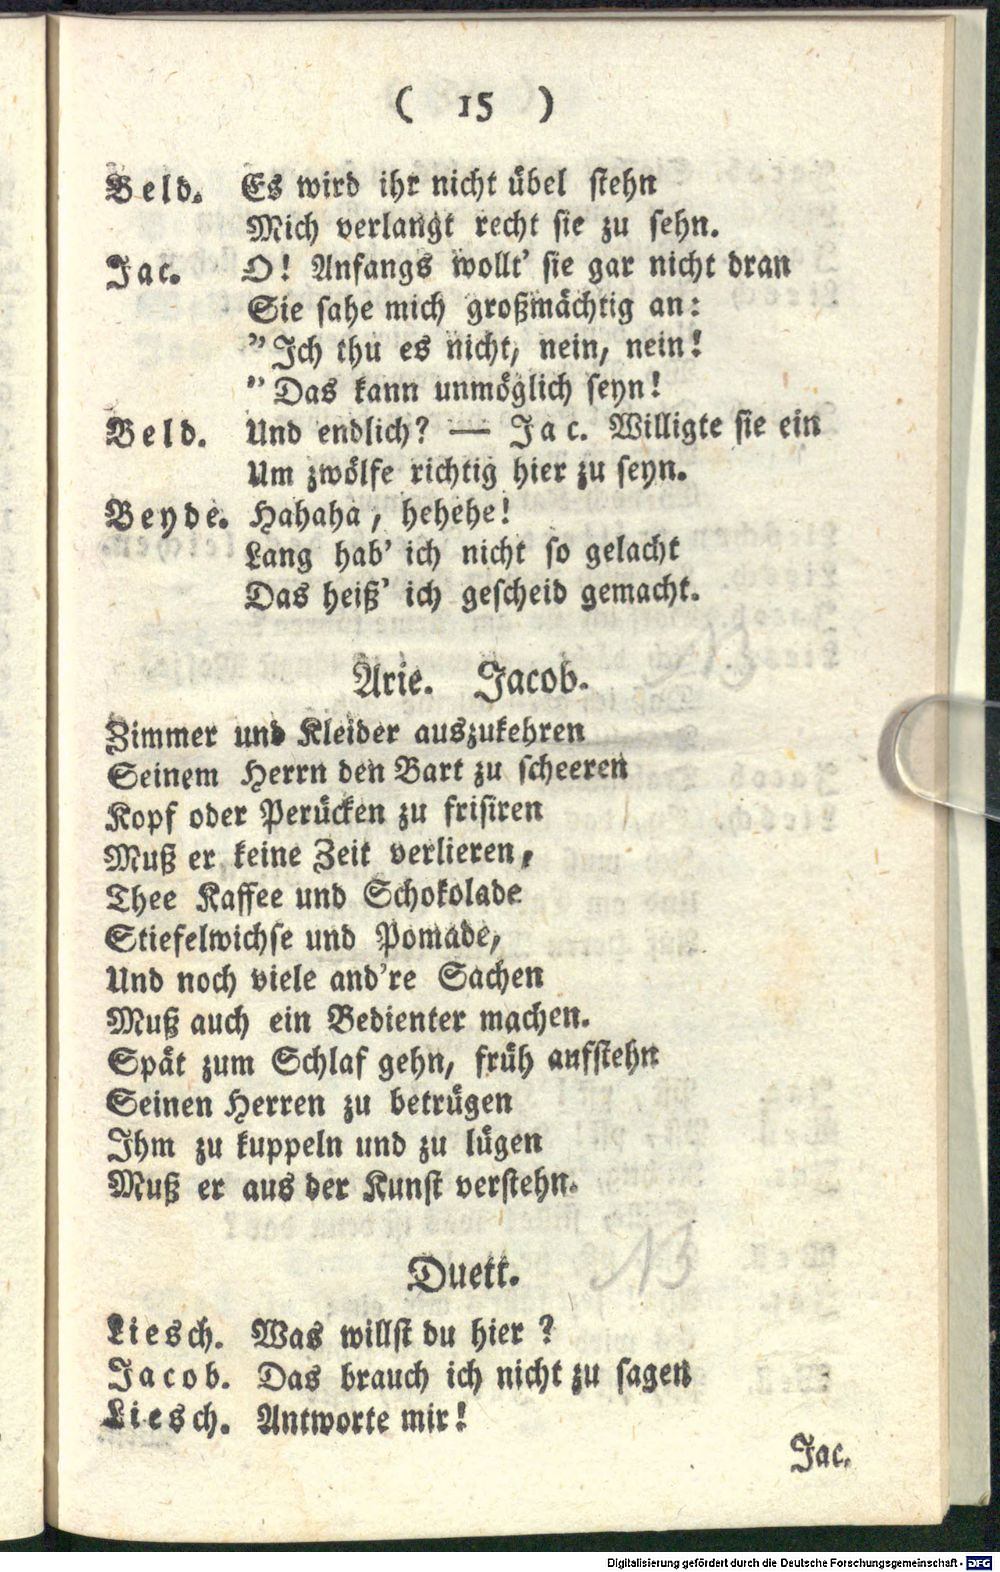 ( 15 )
Beld. Es wird ihr nicht übel stehn
Mich verlangt recht sie zu sehn.
Jac. O! Anfangs wollt' sie gar nicht dran
Sie sahe mich großmächtig an:
"Ich thu es nicht, nein, nein!
"Das kann unmöglich seyn!
Beld. Und endlich? — Jac. Willigte sie ein
Um zwölfe richtig hier zu seyn.
Beyde. Hahaha, hehehe!
Lang hab' ich nicht so gelacht
Das heiß' ich gescheid gemacht.
Arie. Jacob.
Zimmer und Kleider auszukehren
Seinem Herrn den Bart zu scheeren
Kopf oder Perücken zu frisiren
Muß er keine Zeit verlieren,
Thee Kaffee und Schokolade
Stiefelwichse und Pomade,
Und noch viele and're Sachen
Muß auch ein Bedienter machen.
Spät zum Schlaf gehn, früh aufstehn
Seinen Herren zu betrügen
Ihm zu kuppeln und zu lügen
Muß er aus der Kunst verstehn.
Duett.
Liesch. Was willst du hier?
Jacob. Das brauch ich nicht zu sagen
Liesch. Antworte mir!
Jac.
Digitalisierung gefördert durch die Deutsche Forschungsgemeinschaft - DFG